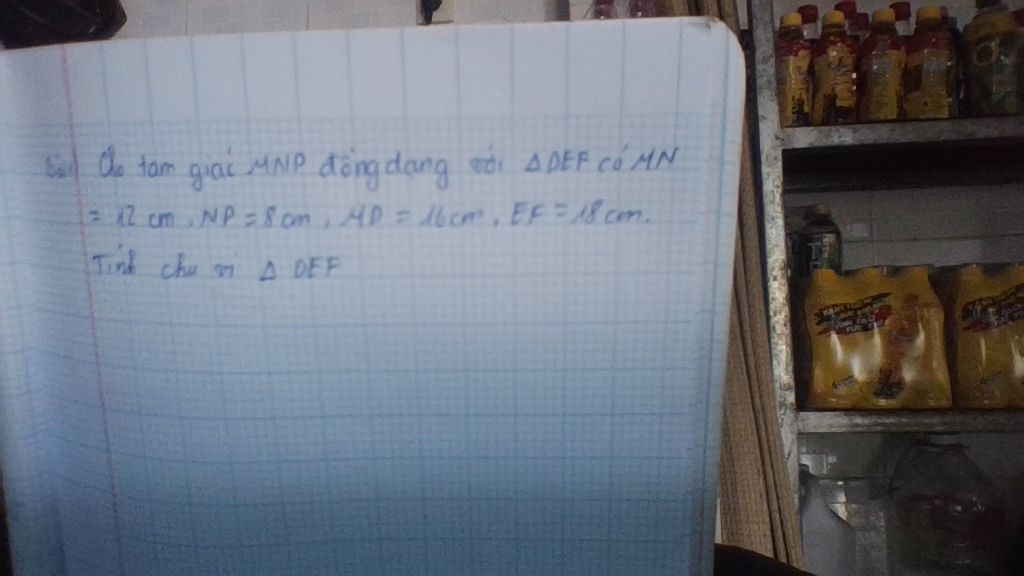 Bài 1 Cho tam giác MNP đồng dạng với Δ DEF có MN
= 12 cm, NP = 8 cm, MP = 16 cm, EF = 18 cm.
Tính chu vi Δ DEF